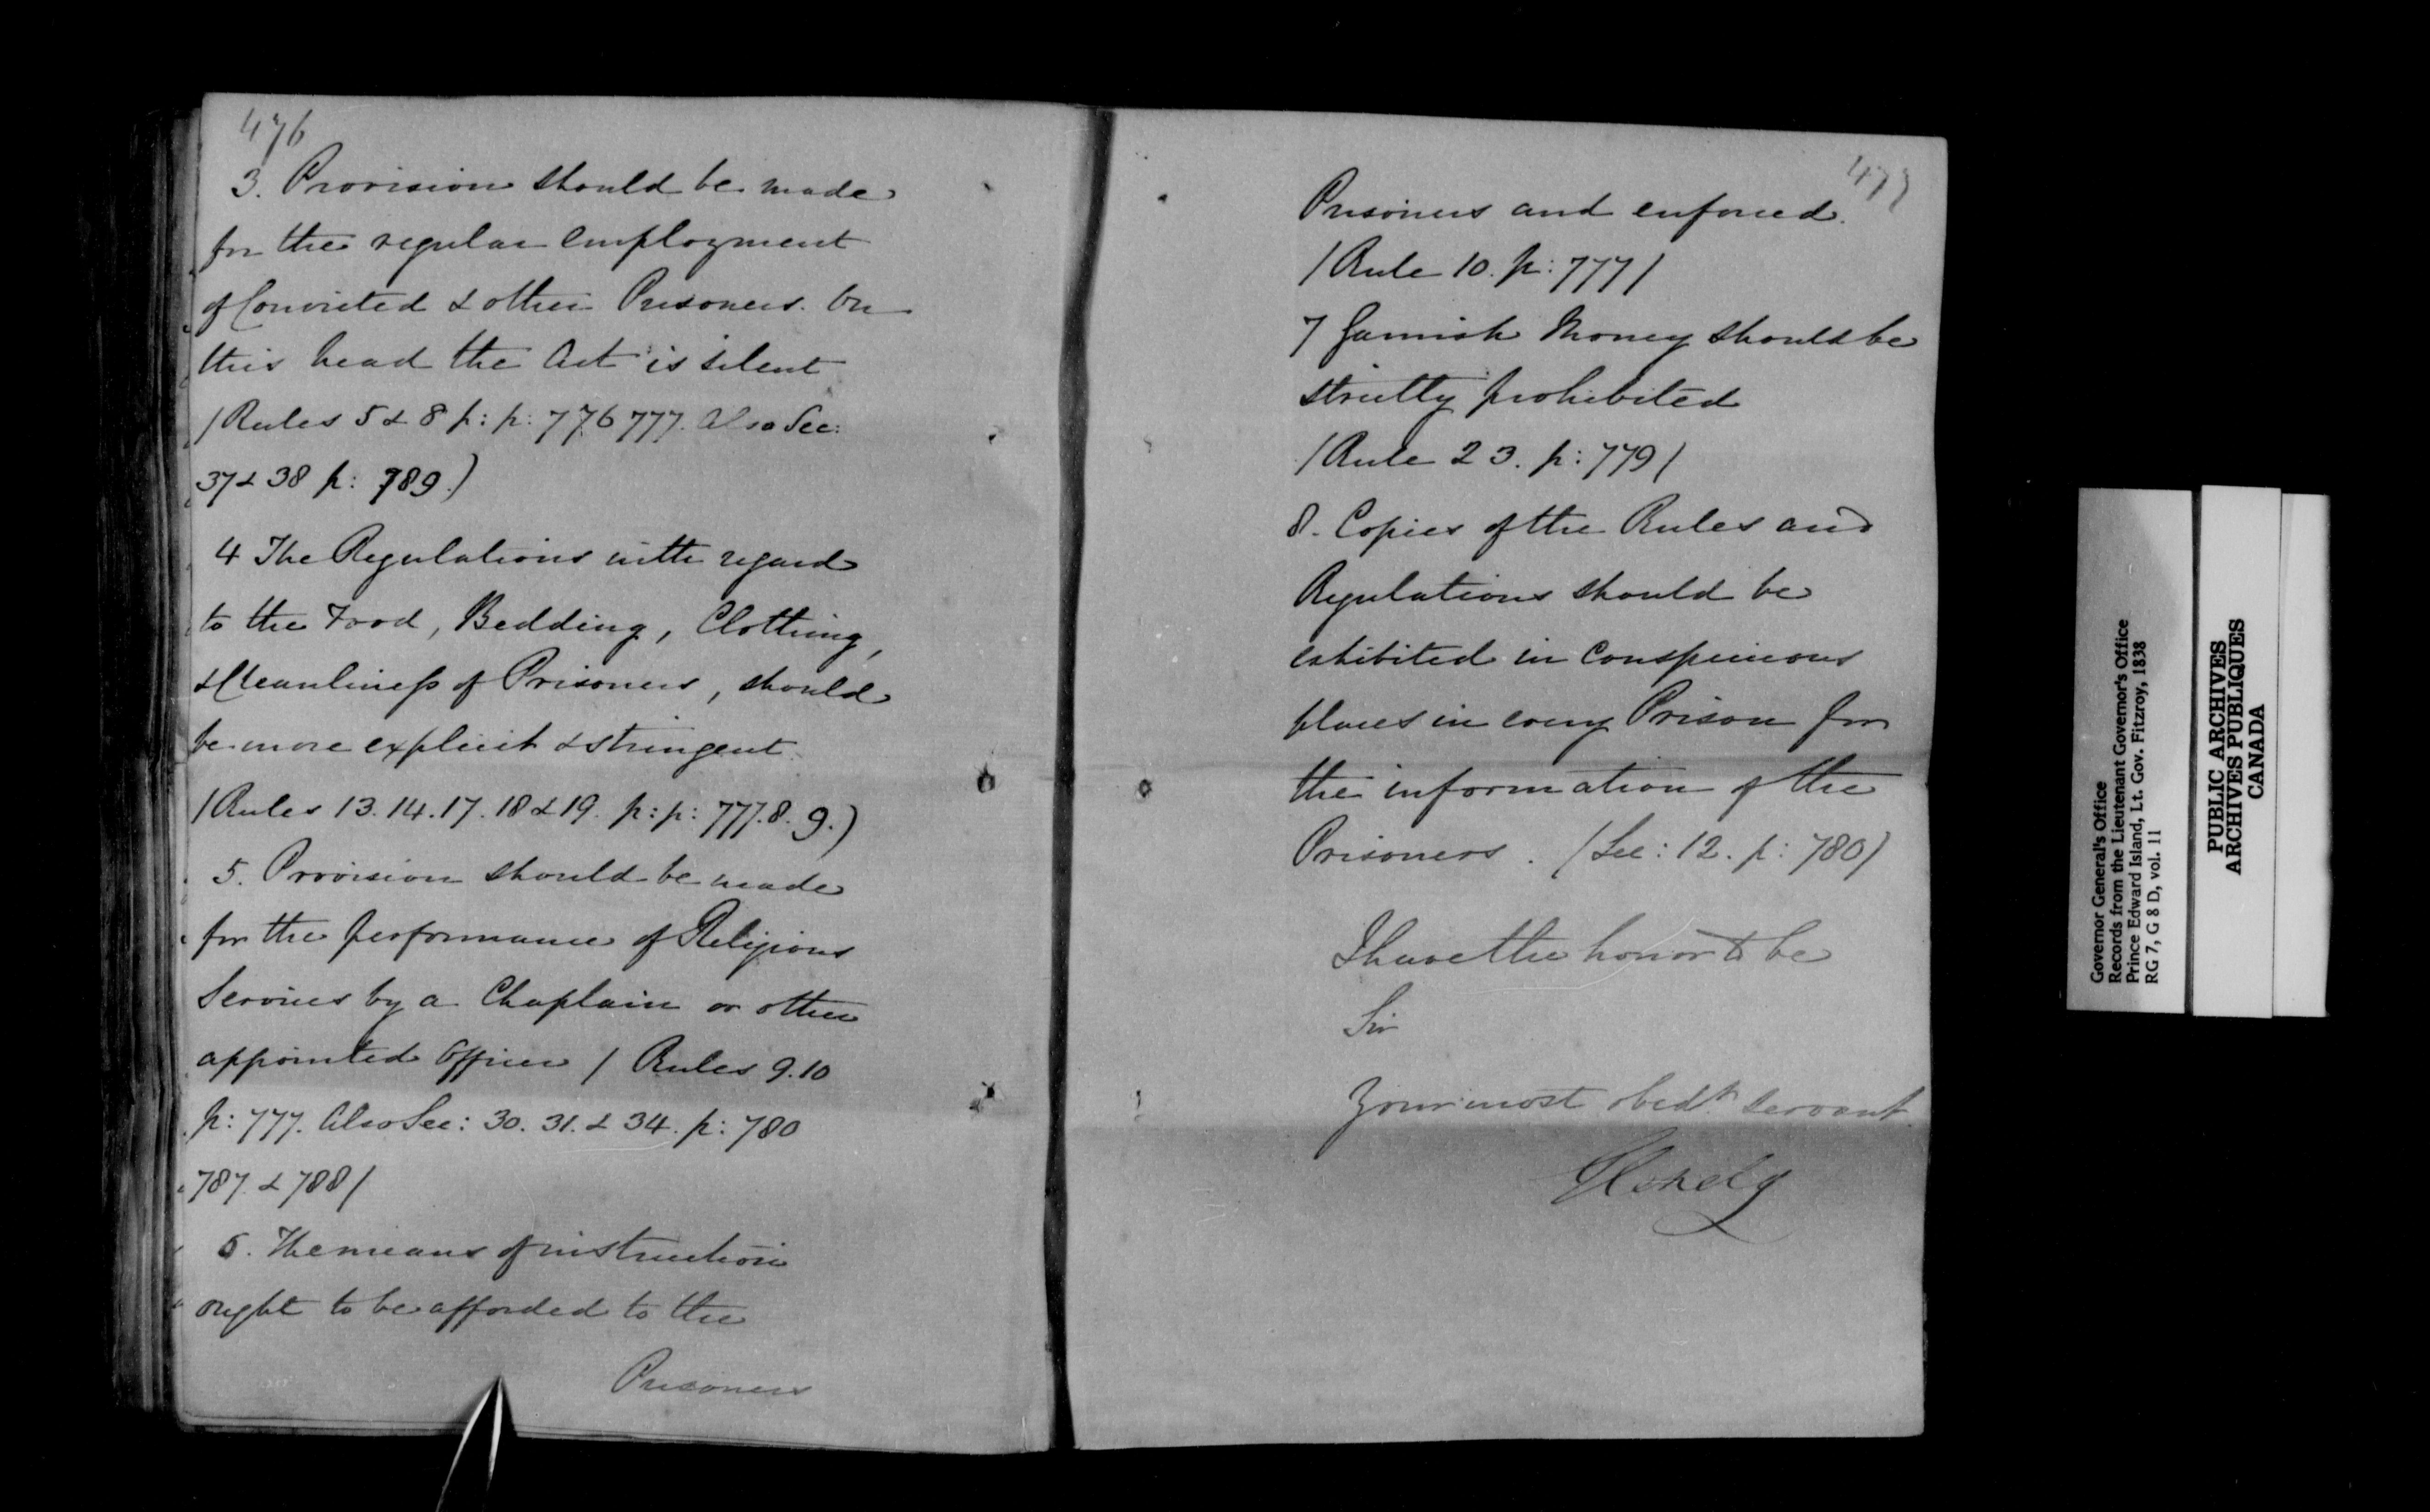 476
3. Provision should be made
for the regular employment
of Convicted & other Prisoners. On
this head the Act is silent
/Rules 5 & 8 p: p: 776 777. Also Sec:
37 & 38 p: 789.)
4 The Regulations with regard
to the Food, Bedding, Clothing,
& Cleanliness of Prisoners, should
be more explicit & stringent.
/Rules 13. 14. 17. 18 & 19. p: p: 777. 8. 9.)
5. Provision should be made
for the performance of Religious
Services by a Chaplain or other
appointed Officer / Rules 9. 10
p: 777. Also Sec: 30. 31. & 34. p: 780
787. & 788/
6. The means of instruction
ought to be afforded to the
Prisoners
477
Prisoners and enforced.
/Rule 10. p: 777/
7 Garnish Money should be
strictly prohibited
/Rule 23. p: 779/
8. Copies of the Rules and
Regulations should be
exhibited in conspicuous
places in every Prison for
the information of the
Prisoners. /Sec: 12. p: 780)
I have the honor to be
Sir
Your most obedt. servant
Glenelg
Governor General's Office
Records from the Lieutenant Governor's Office
Prince Edward Island, Lt. Gov. Fitzroy, 1838
RG 7, G 8 D, vol. 11
PUBLIC ARCHIVES
ARCHIVES PUBLIQUES
CANADA